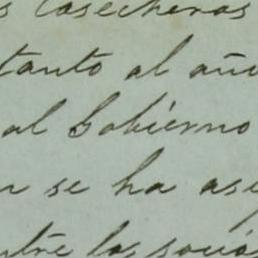 s cosecheros
tanto al año
al Gobierno
n se ha ase
entre los socios